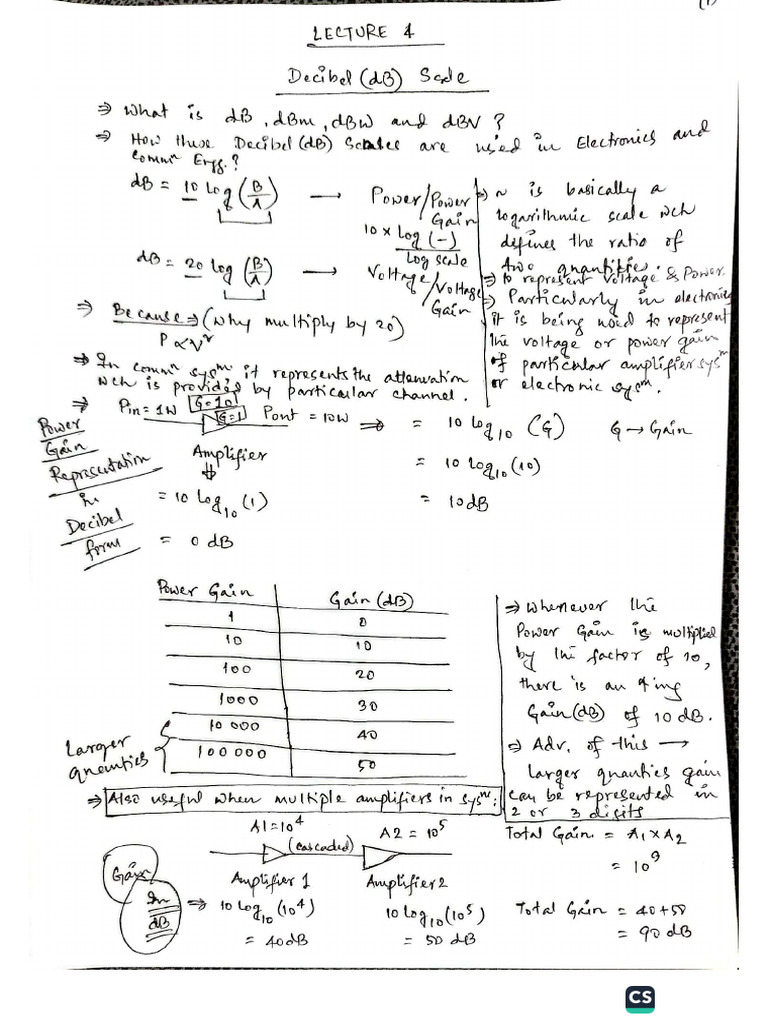 (1)
LECTURE 4
Decibel (dB) Scale
⇒ What is dB, dBm, dBW and dBV ?
⇒ How these Decibel (dB) Scales are used in Electronics and
commⁿ Engg. ?
dB = 10 log (B/A) → Power/Power Gain
10 × Log (-)
Log scale
dB = 20 log (B/A) → Voltage/Voltage Gain
⇒ Because ⇒ (Why multiply by 20)
P ∝ V²
⇒ In commⁿ sysᵐ it represents the attenuation
wch is provided by particular channel.
⇒ ~ is basically a
logarithmic scale wch
defines the ratio of
two quantities.
⇒ to represent Voltage & Power.
⇒ Particularly in electronics
it is being used to represent
the voltage or power gain
of particular amplifier sysᵐ
or electronic sysᵐ.
⇒ Pin = 1W G=10 G=1 Pout = 10W ⇒ = 10 log₁₀ (G) G → Gain
Power
Gain
Representation
in
Decibel
form
Amplifier
= 10 log₁₀ (1)
= 0 dB
= 10 log₁₀ (10)
= 10dB
Power Gain Gain (dB)
1 0
10 10
100 20
1000 30
10 000 40
100 000 50
Larger
quanties
⇒ Whenever the
Power Gain is multiplied
by the factor of 10,
there is an ↑ing
Gain(dB) of 10 dB.
⇒ Adv. of this →
larger quanties gain
can be represented in
2 or 3 digits
⇒ Also useful when multiple amplifiers in sysᵐ:
A1=10⁴ A2 = 10⁵
(cascaded)
Amplifier 1 Amplifier 2
Total Gain = A₁ × A₂
= 10⁹
Gain
In
dB
⇒ 10 log₁₀ (10⁴) 10 log₁₀ (10⁵)
= 40dB = 50 dB
Total Gain = 40+50
= 90 dB
CS